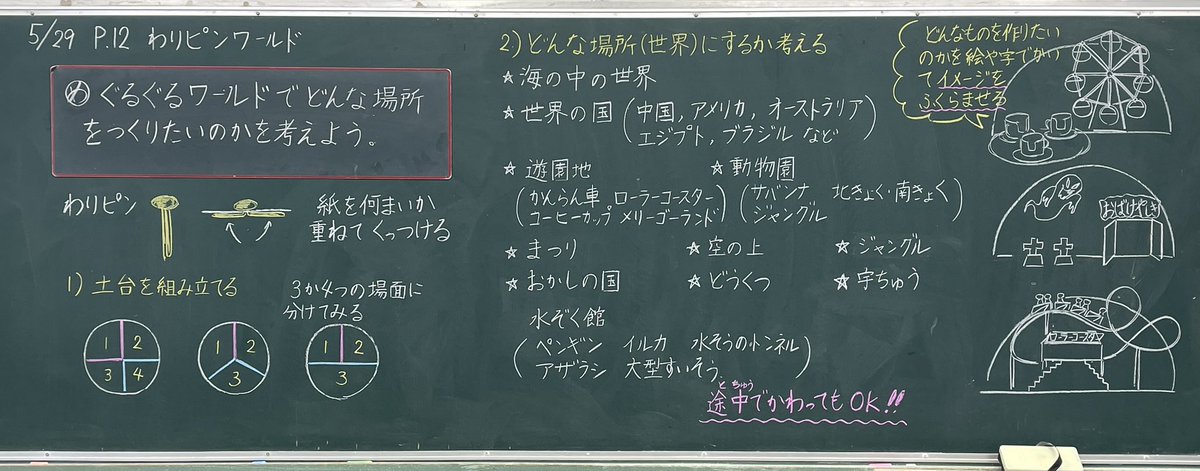 5/29 P.12 わりピンワールド
め ぐるぐるワールドでどんな場所
をつくりたいのかを考えよう。
わりピン
紙を何まいか
重ねてくっつける
1) 土台を組み立てる
3か4つの場面に
分けてみる
1 2
3 4
1 2
3
1 2
3
2) どんな場所(世界)にするか考える
☆海の中の世界
☆世界の国(中国,アメリカ,オーストラリア
エジプト,ブラジル など)
☆遊園地
(かんらん車 ローラーコースター
コーヒーカップ メリーゴーランド)
☆動物園
(サバンナ 北きょく・南きょく
ジャングル)
☆まつり ☆空の上 ☆ジャングル
☆おかしの国 ☆どうくつ ☆宇ちゅう
水ぞく館
(ペンギン イルカ 水そうのトンネル
アザラシ 大型すいそう)
とちゅう
途中でかわってもOK!!
どんなものを作りたい
のかを絵や字でかい
てイメージを
ふくらませる
おばけやしき
ローラーコースター